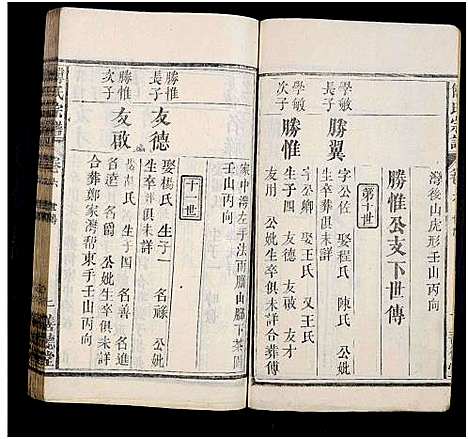 灣後山虎形壬山丙向
勝惟公支下世傳
第十世
學敏
長子
勝翼
字公佐 娶程氏 陳氏 公妣
生卒葬俱未詳
學敏
次子
勝惟
字公卿 娶王氏 又王氏
生子四 友德 友啟 友才
友用 公妣生卒俱未詳合葬傅
家中灣左手法雨廟山腳下茶園
壬山丙向
十一世
勝惟
長子
友德
娶楊氏 生子一 名祿 公妣
生卒葬俱未詳
勝惟
次子
友啟
生子四 名善 名進
名遠 公妣生卒俱未詳
合葬鄭家灣帮東手壬山丙向
氏宗譜
善德堂